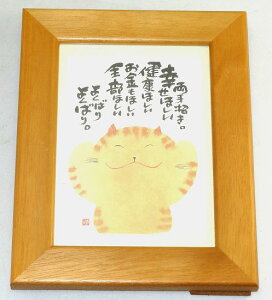 両手招き。
幸せほしい
健康ほしい
お金もほしい
全部ほしい
よくばり
よくばり。